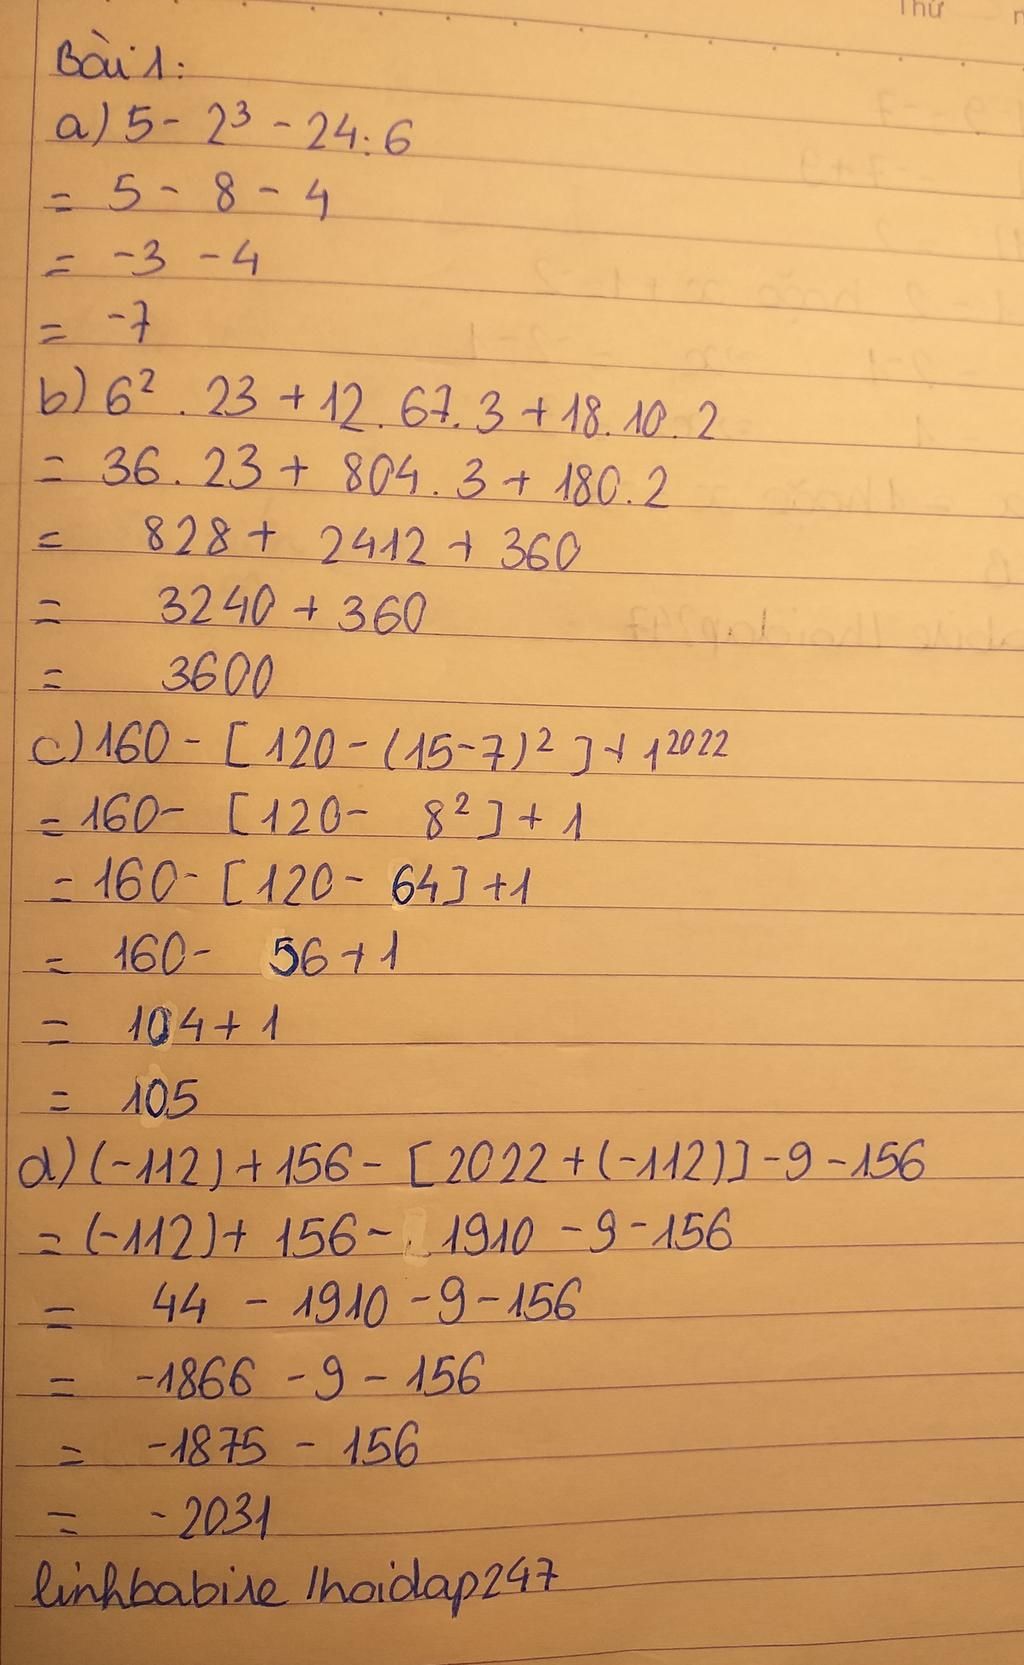 Thứ
Bài 1:
a) 5 - 2³ - 24 : 6
= 5 - 8 - 4
= -3 - 4
= -7
b) 6² . 23 + 12 . 67 . 3 + 18 . 10 . 2
= 36 . 23 + 804 . 3 + 180 . 2
= 828 + 2412 + 360
= 3240 + 360
= 3600
c) 160 - [120 - (15 - 7)²] + 1²⁰²²
= 160 - [120 - 8²] + 1
= 160 - [120 - 64] + 1
= 160 - 56 + 1
= 104 + 1
= 105
d) (-112) + 156 - [2022 + (-112)] - 9 - 156
= (-112) + 156 - 1910 - 9 - 156
= 44 - 1910 - 9 - 156
= -1866 - 9 - 156
= -1875 - 156
= -2031
linhbabise /hoidap247